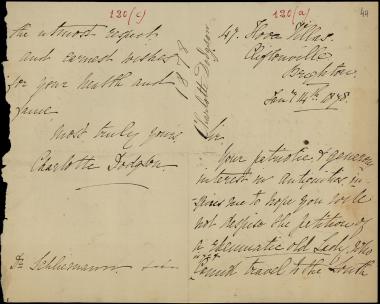 120(c)
the utmost respect
and earnest wishes
for your health and
fame
Most truly yours,
Charlotte Dodgson.
Dr Schliemann.
1878
Charlotte Dodgson
120(a)
44
47. Villas.
Cliftonville
Brighton.
Jany 14th 1878.
Sir
Your patriotic & generous
interest in antiquities, in-
spires me to hope you will
not despise the petition of
a rheumatic old Lady, who
cannot travel to the South